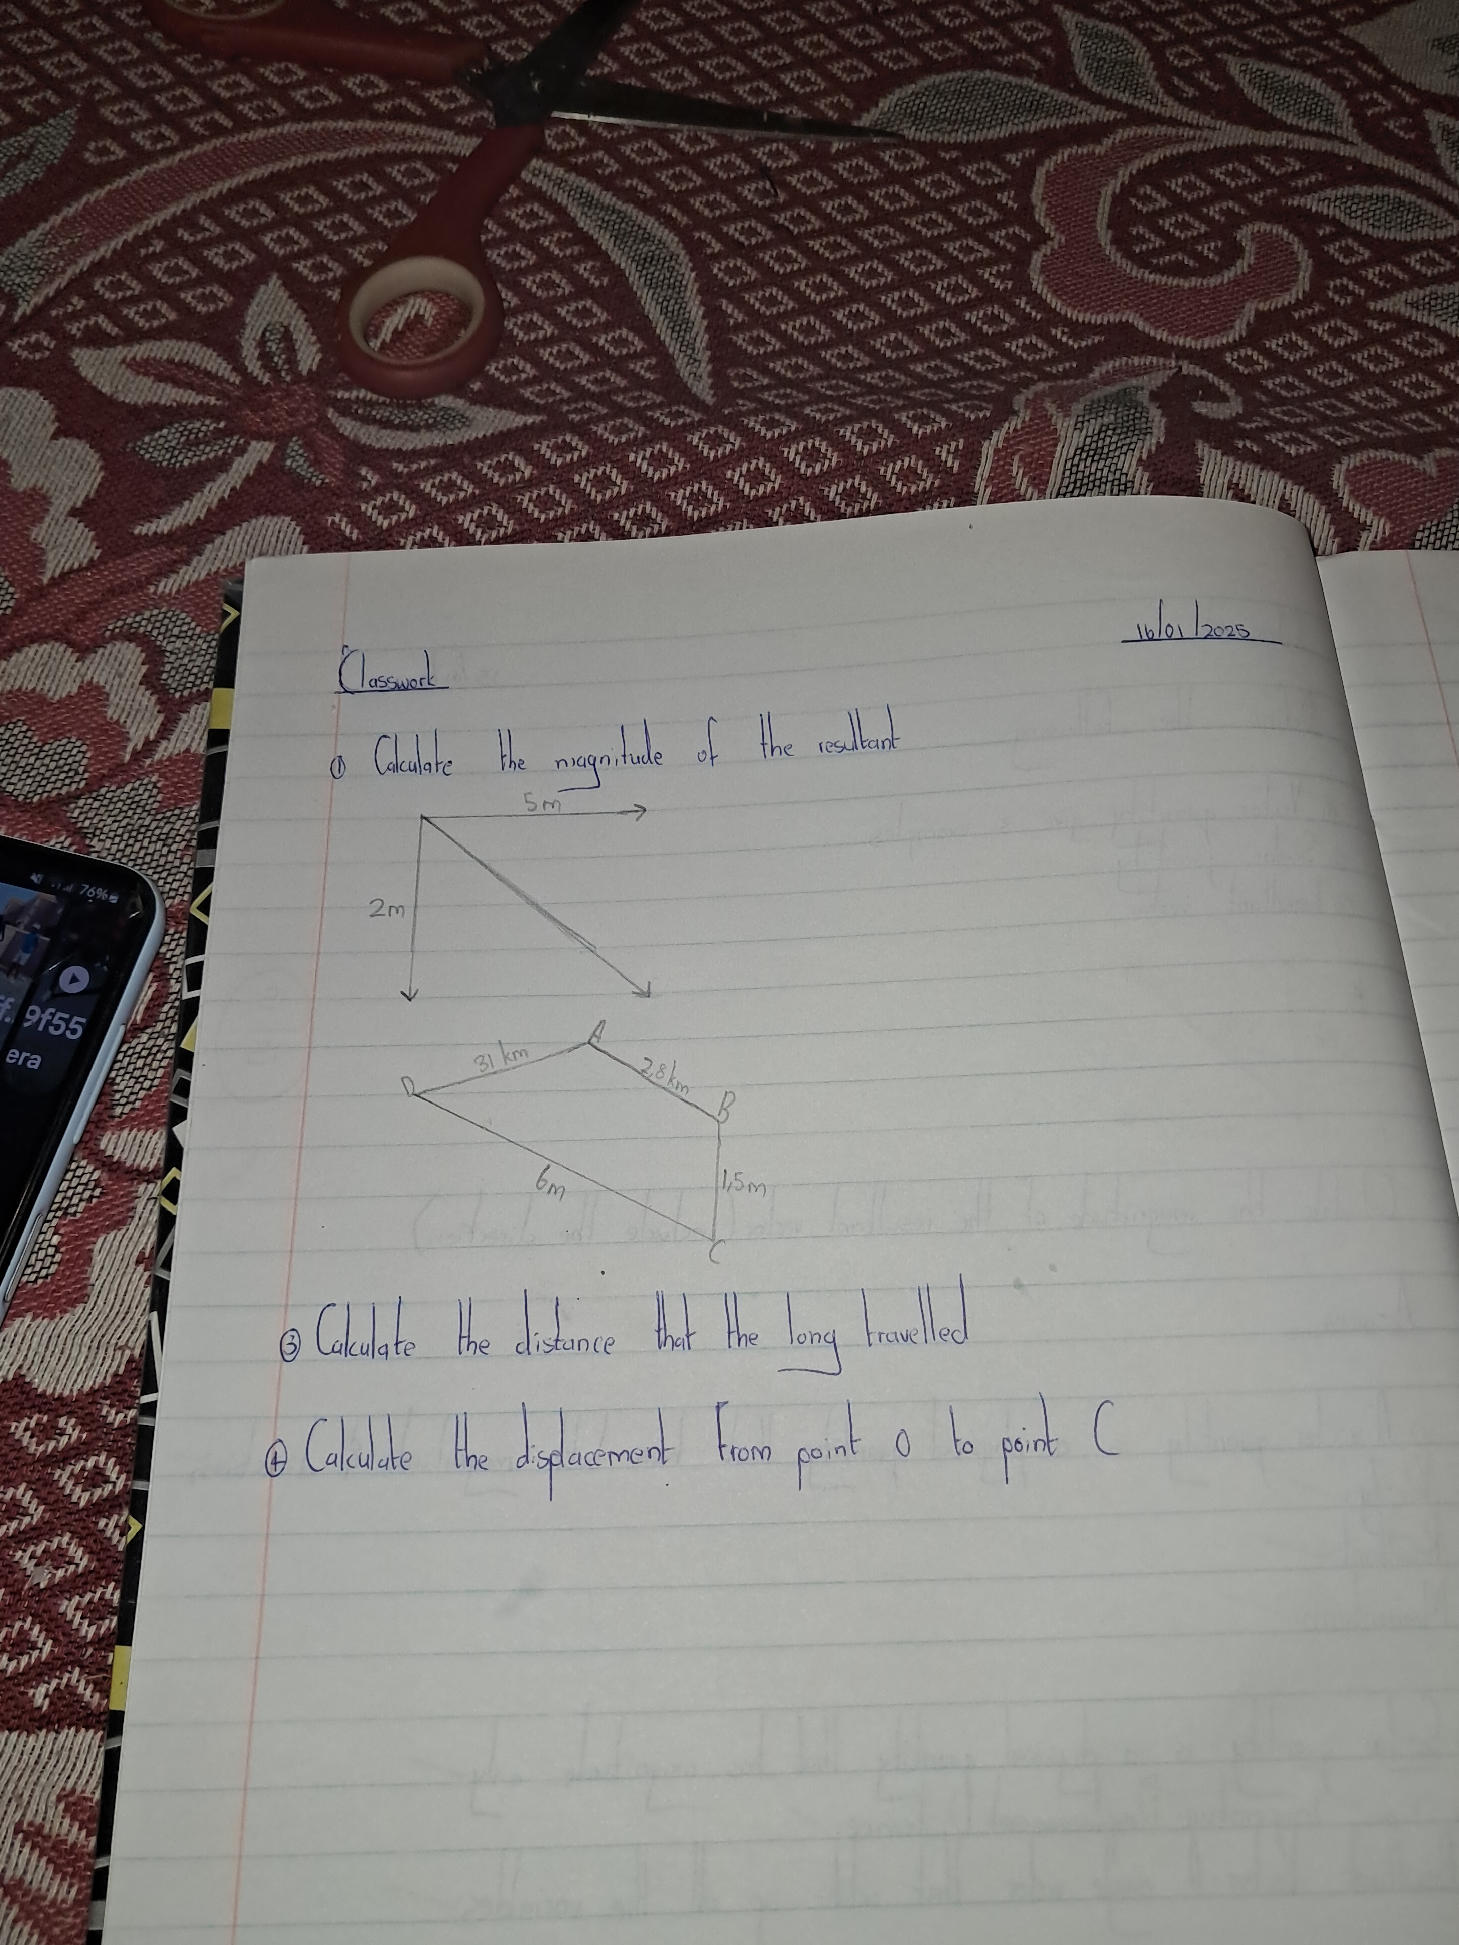 76%
9f55
era
16/01/2025
Classwork
① Calculate the magnitude of the resultant
5m
2m
A
31 km
2,8km
O
B
6m
1,5m
C
③ Calculate the distance that the long travelled
④ Calculate the displacement from point O to point C